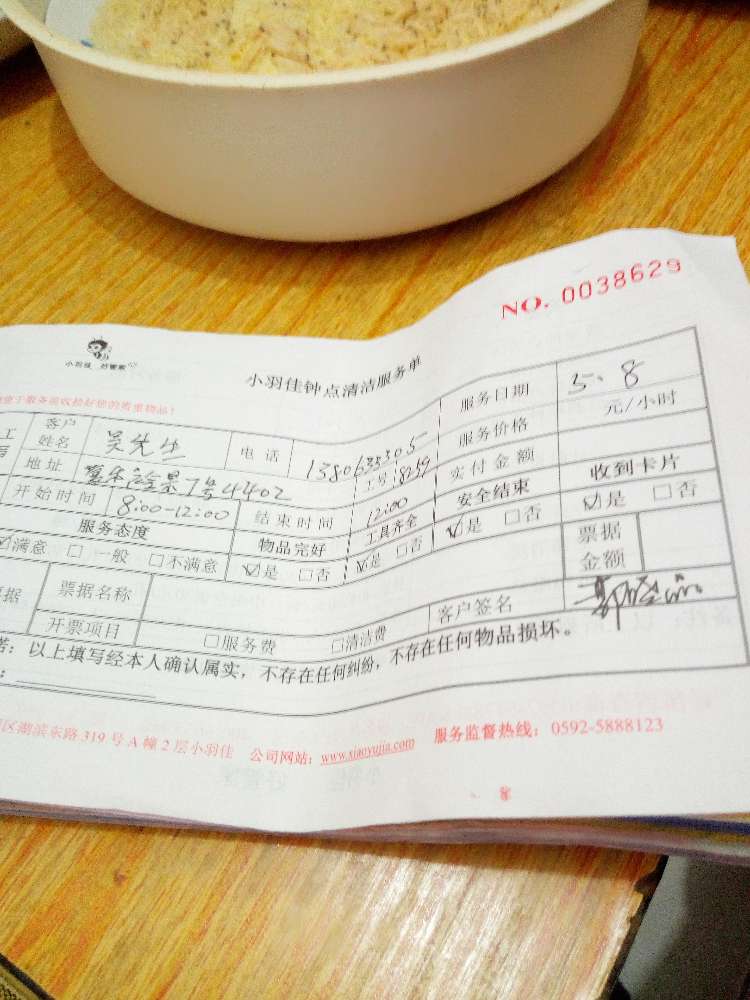 NO. 0038629
小羽佳 好管家
小羽佳钟点清洁服务单
服务日期 5.8
客户姓名 吴先生 电话 服务价格 元/小时
地址 7号4402 工号:8259 实付金额 收到卡片
开始时间 8:00-12:00 结束时间 12:00 安全结束 ☑是 □否
服务态度 物品完好 工具齐全 ☑是 □否 票据金额
☑满意 □一般 □不满意 ☑是 □否 ☑是 □否
票据名称 客户签名
开票项目 □服务费 □清洁费
:以上填写经本人确认属实,不存在任何纠纷,不存在任何物品损坏。
区湖滨东路319号A幢2层小羽佳 公司网站:www.xiaoyujia.com 服务监督热线:0592-5888123